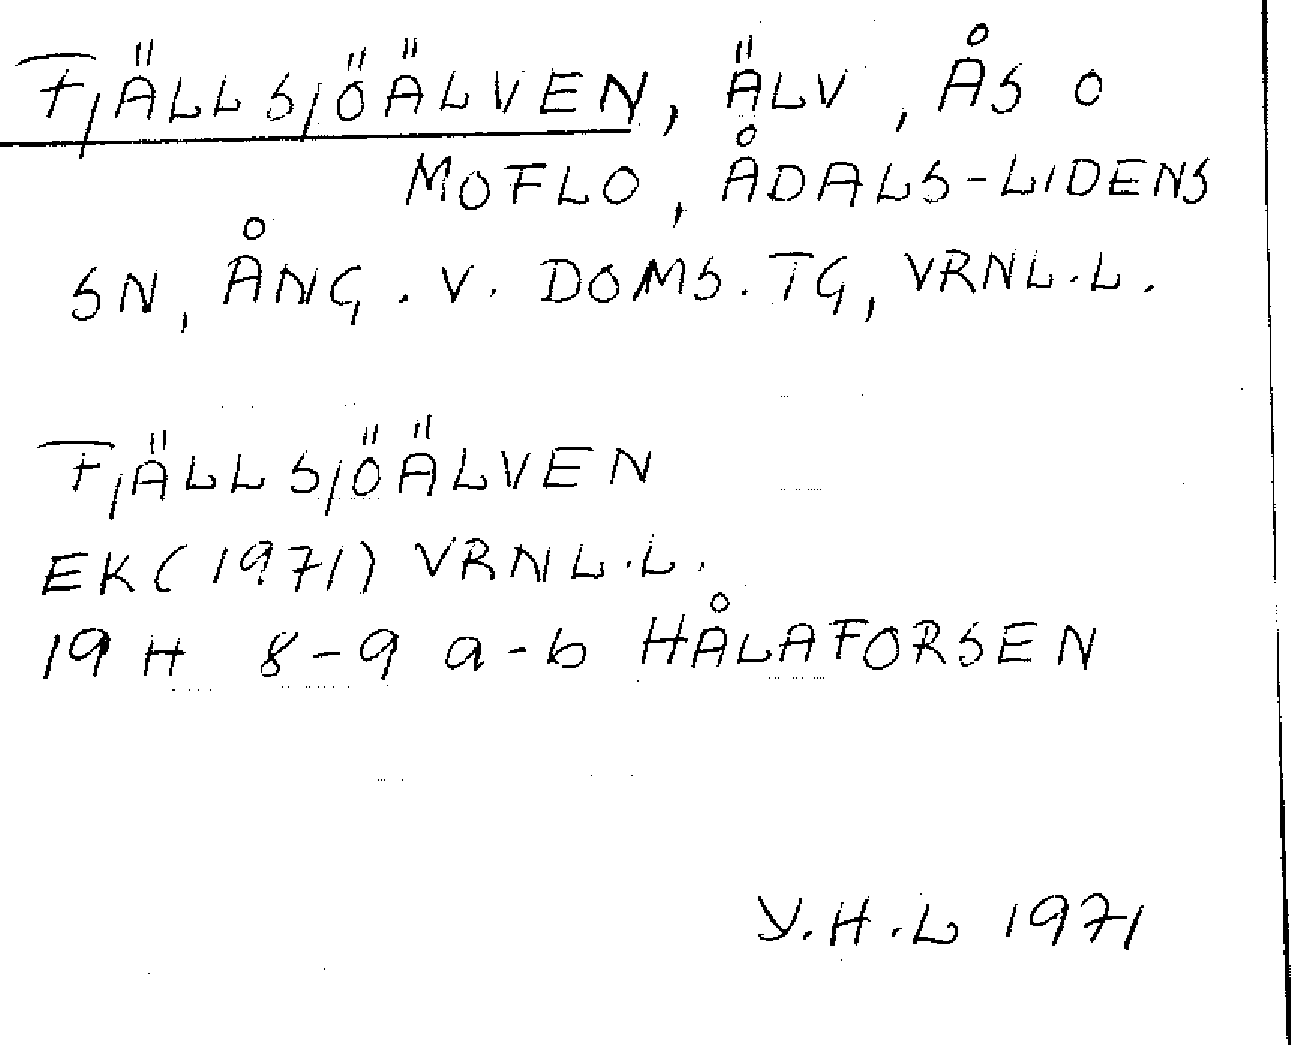 FJÄLLSJÖÄLVEN, ÄLV, ÅS O
MOFLO, ÅDALS-LIDENS
SN, ÅNG. V. DOMS. TG, VRNL.L.
FJÄLLSJÖÄLVEN
EK (1971) VRNL.L.
19 H 8-9 a-b HÅLAFORSEN
Y.H.L 1971